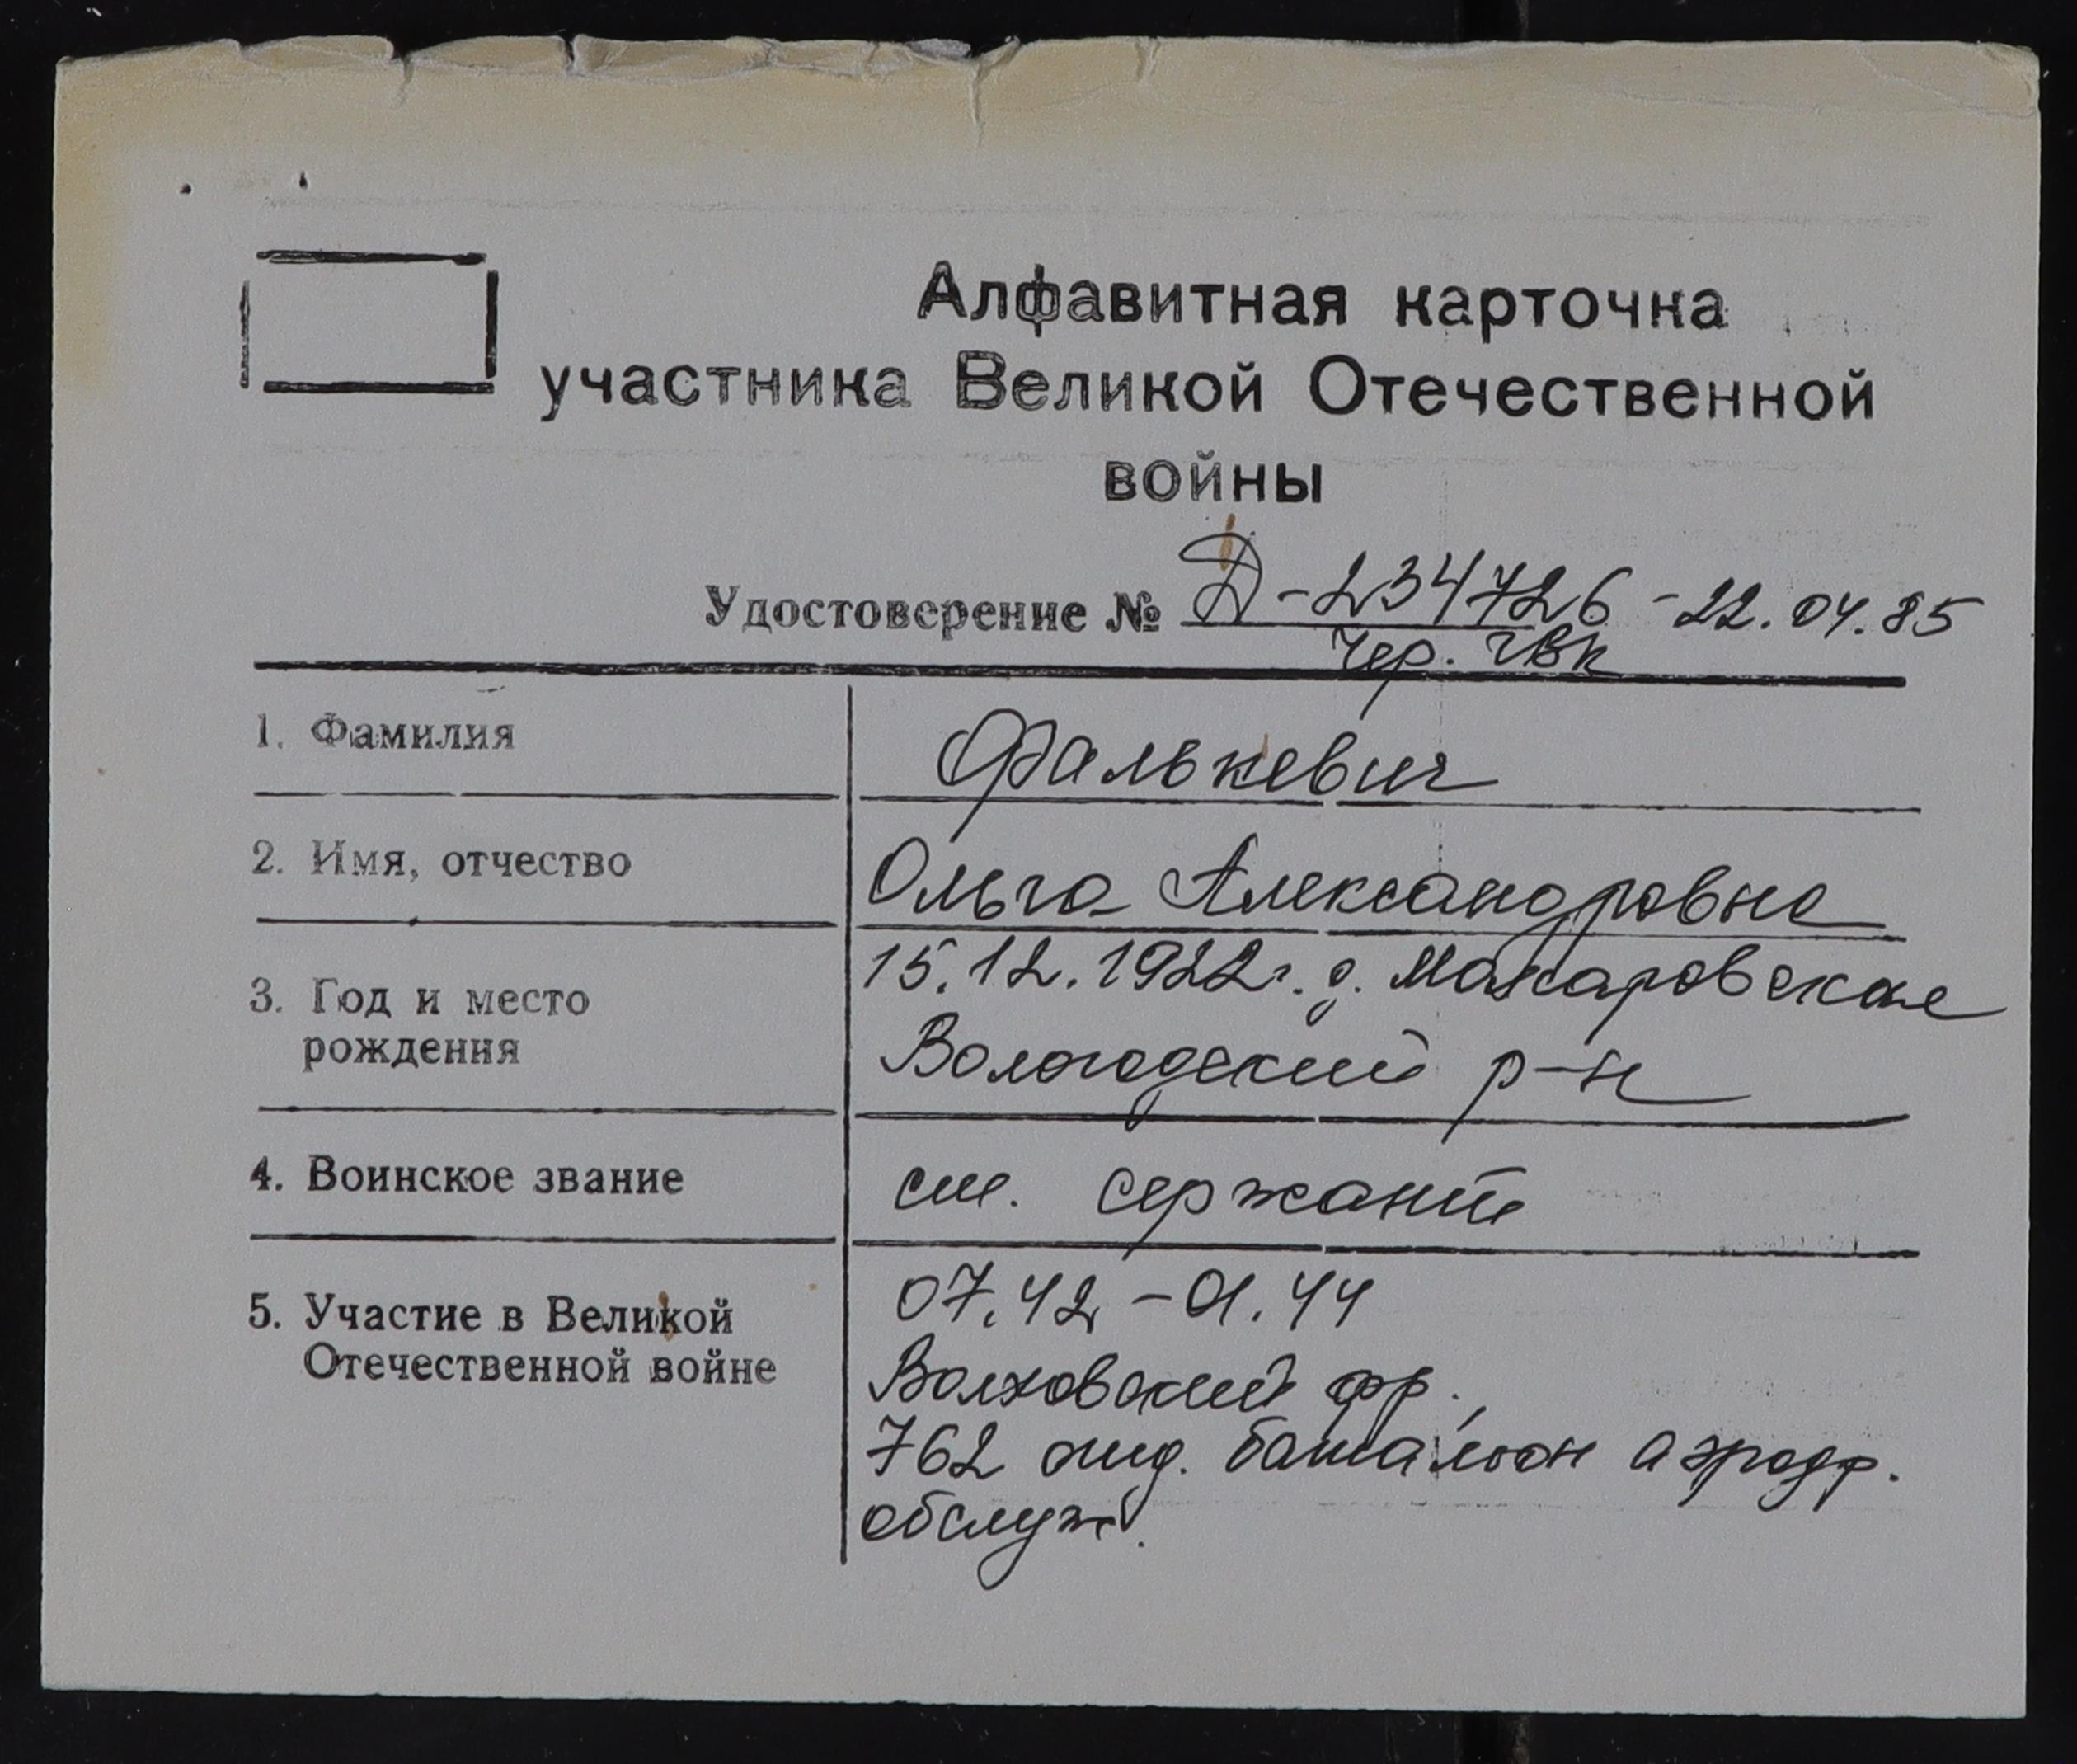 Алфавитная карточка
участника Великой Отечественной
войны
Удостоверение № Д-234726 - 22.04.85
Чер. ГВК
1. Фамилия
Фалькевич
2. Имя, отчество
Ольга Александровна
3. Год и место
рождения
15.12.1922г. д. Макаровская
Вологодский р-н
4. Воинское звание
сержант
5. Участие в Великой
Отечественной войне
07.42 - 01.44
Волховский фр.,
762 батальон аэродр.
обслуж.